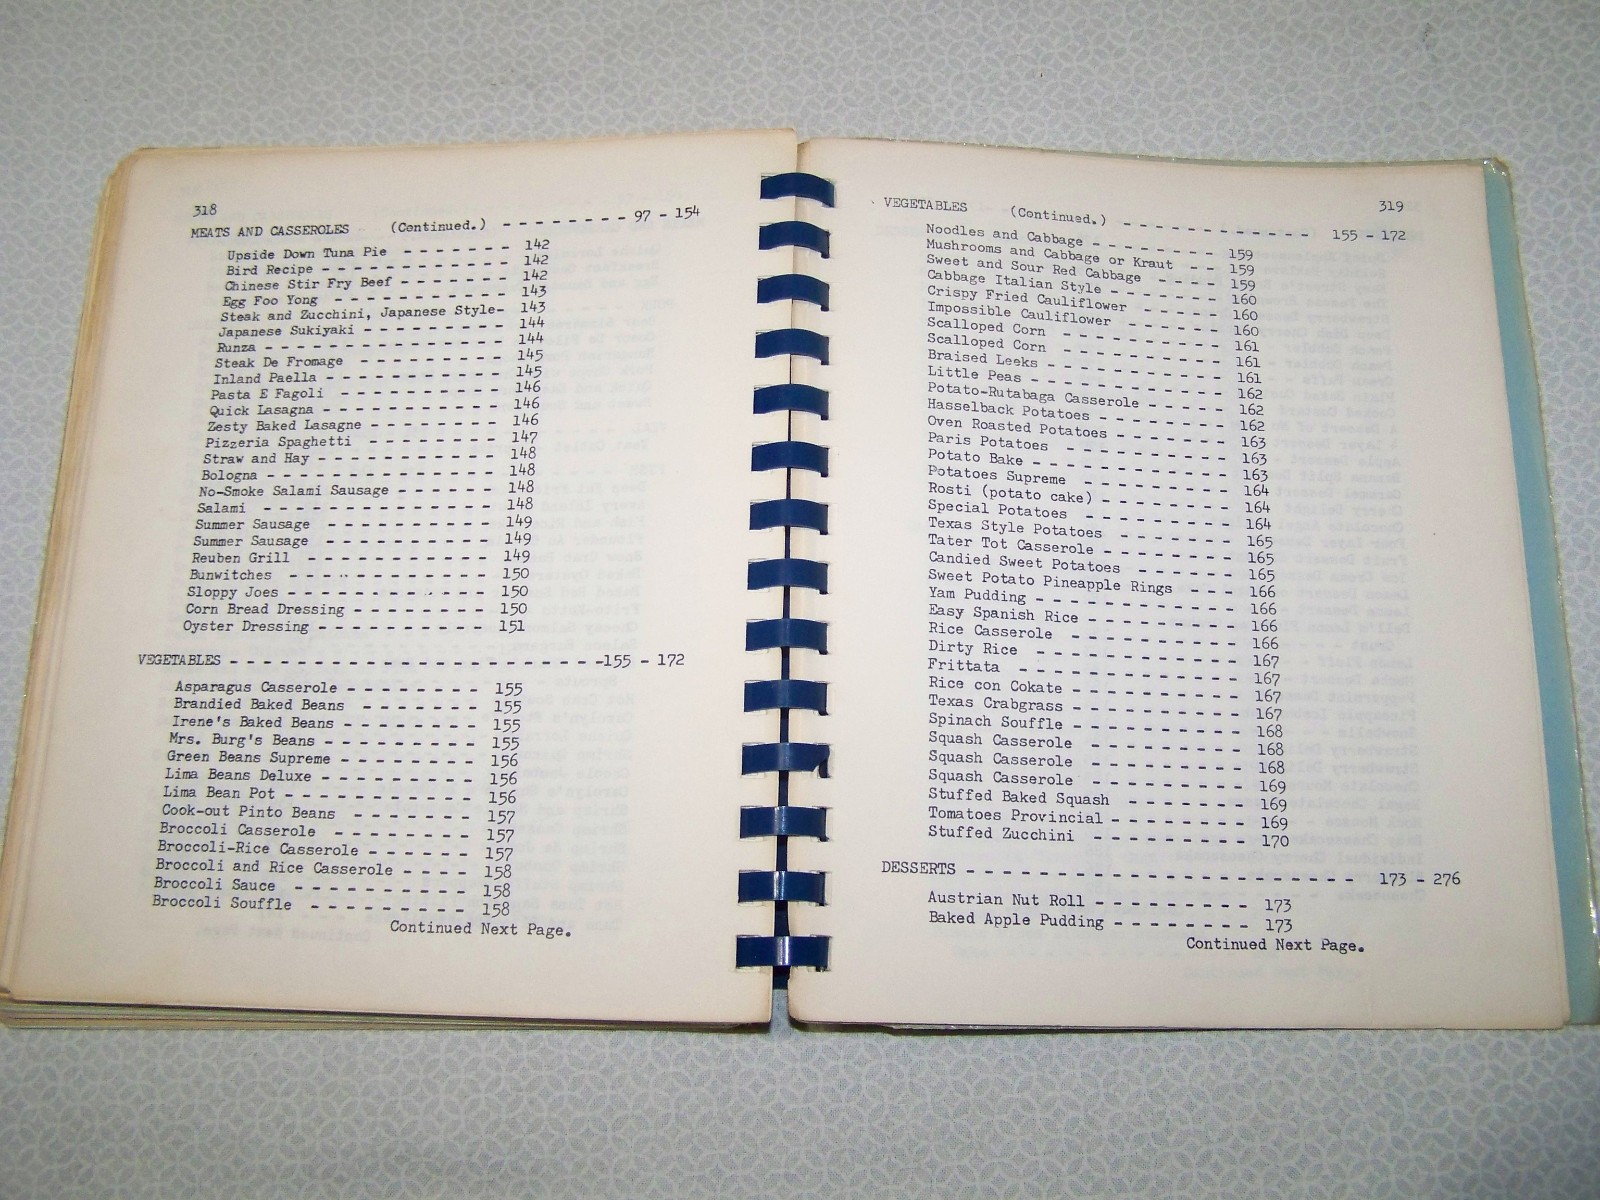 318
MEATS AND CASSEROLES (Continued.) - - - - - - - - 97 - 154
Upside Down Tuna Pie - - - - - - - 142
Bird Recipe - - - - - - - - - - - - 142
Chinese Stir Fry Beef - - - - - - - 142
Egg Foo Yong - - - - - - - - - - - 143
Steak and Zucchini, Japanese Style- 143
Japanese Sukiyaki - - - - - - - - - 144
Runza - - - - - - - - - - - - - - - 144
Steak De Fromage - - - - - - - - - 145
Inland Paella - - - - - - - - - - - 145
Pasta E Fagoli - - - - - - - - - - 146
Quick Lasagna - - - - - - - - - - - 146
Zesty Baked Lasagne - - - - - - - - 146
Pizzeria Spaghetti - - - - - - - - 147
Straw and Hay - - - - - - - - - - - 148
Bologna - - - - - - - - - - - - - - 148
No-Smoke Salami Sausage - - - - - - 148
Salami - - - - - - - - - - - - - - 148
Summer Sausage - - - - - - - - - - 149
Summer Sausage - - - - - - - - - - 149
Reuben Grill - - - - - - - - - - - 149
Bunwitches - - - - - - - - - - - - 150
Sloppy Joes - - - - - - - - - - - - 150
Corn Bread Dressing - - - - - - - - 150
Oyster Dressing - - - - - - - - - - 151
VEGETABLES - - - - - - - - - - - - - - - - - - - - - - -155 - 172
Asparagus Casserole - - - - - - - - 155
Brandied Baked Beans - - - - - - - 155
Irene's Baked Beans - - - - - - - - 155
Mrs. Burg's Beans - - - - - - - - - 155
Green Beans Supreme - - - - - - - - 156
Lima Beans Deluxe - - - - - - - - - 156
Lima Bean Pot - - - - - - - - - - - 156
Cook-out Pinto Beans - - - - - - - 157
Broccoli Casserole - - - - - - - - 157
Broccoli-Rice Casserole - - - - - - 157
Broccoli and Rice Casserole - - - - 158
Broccoli Sauce - - - - - - - - - - 158
Broccoli Souffle - - - - - - - - - 158
Continued Next Page.
319
VEGETABLES (Continued.) - - - - - - - - - - - - 155 - 172
Noodles and Cabbage - - - - - - - - 159
Mushrooms and Cabbage or Kraut - - 159
Sweet and Sour Red Cabbage - - - - 159
Cabbage Italian Style - - - - - - - 160
Crispy Fried Cauliflower - - - - - 160
Impossible Cauliflower - - - - - - 160
Scalloped Corn - - - - - - - - - - 161
Scalloped Corn - - - - - - - - - - 161
Braised Leeks - - - - - - - - - - - 161
Little Peas - - - - - - - - - - - - 162
Potato-Rutabaga Casserole - - - - - 162
Hasselback Potatoes - - - - - - - - 162
Oven Roasted Potatoes - - - - - - - 163
Paris Potatoes - - - - - - - - - - 163
Potato Bake - - - - - - - - - - - - 163
Potatoes Supreme - - - - - - - - - 164
Rosti (potato cake) - - - - - - - - 164
Special Potatoes - - - - - - - - - 164
Texas Style Potatoes - - - - - - - 165
Tater Tot Casserole - - - - - - - - 165
Candied Sweet Potatoes - - - - - - 165
Sweet Potato Pineapple Rings - - - 166
Yam Pudding - - - - - - - - - - - - 166
Easy Spanish Rice - - - - - - - - - 166
Rice Casserole - - - - - - - - - - 166
Dirty Rice - - - - - - - - - - - - 167
Frittata - - - - - - - - - - - - - 167
Rice con Cokate - - - - - - - - - - 167
Texas Crabgrass - - - - - - - - - - 167
Spinach Souffle - - - - - - - - - - 168
Squash Casserole - - - - - - - - - 168
Squash Casserole - - - - - - - - - 168
Squash Casserole - - - - - - - - - 169
Stuffed Baked Squash - - - - - - - 169
Tomatoes Provincial - - - - - - - - 169
Stuffed Zucchini - - - - - - - - - 170
DESSERTS - - - - - - - - - - - - - - - - - - - - - - - - 173 - 276
Austrian Nut Roll - - - - - - - - - 173
Baked Apple Pudding - - - - - - - - 173
Continued Next Page.